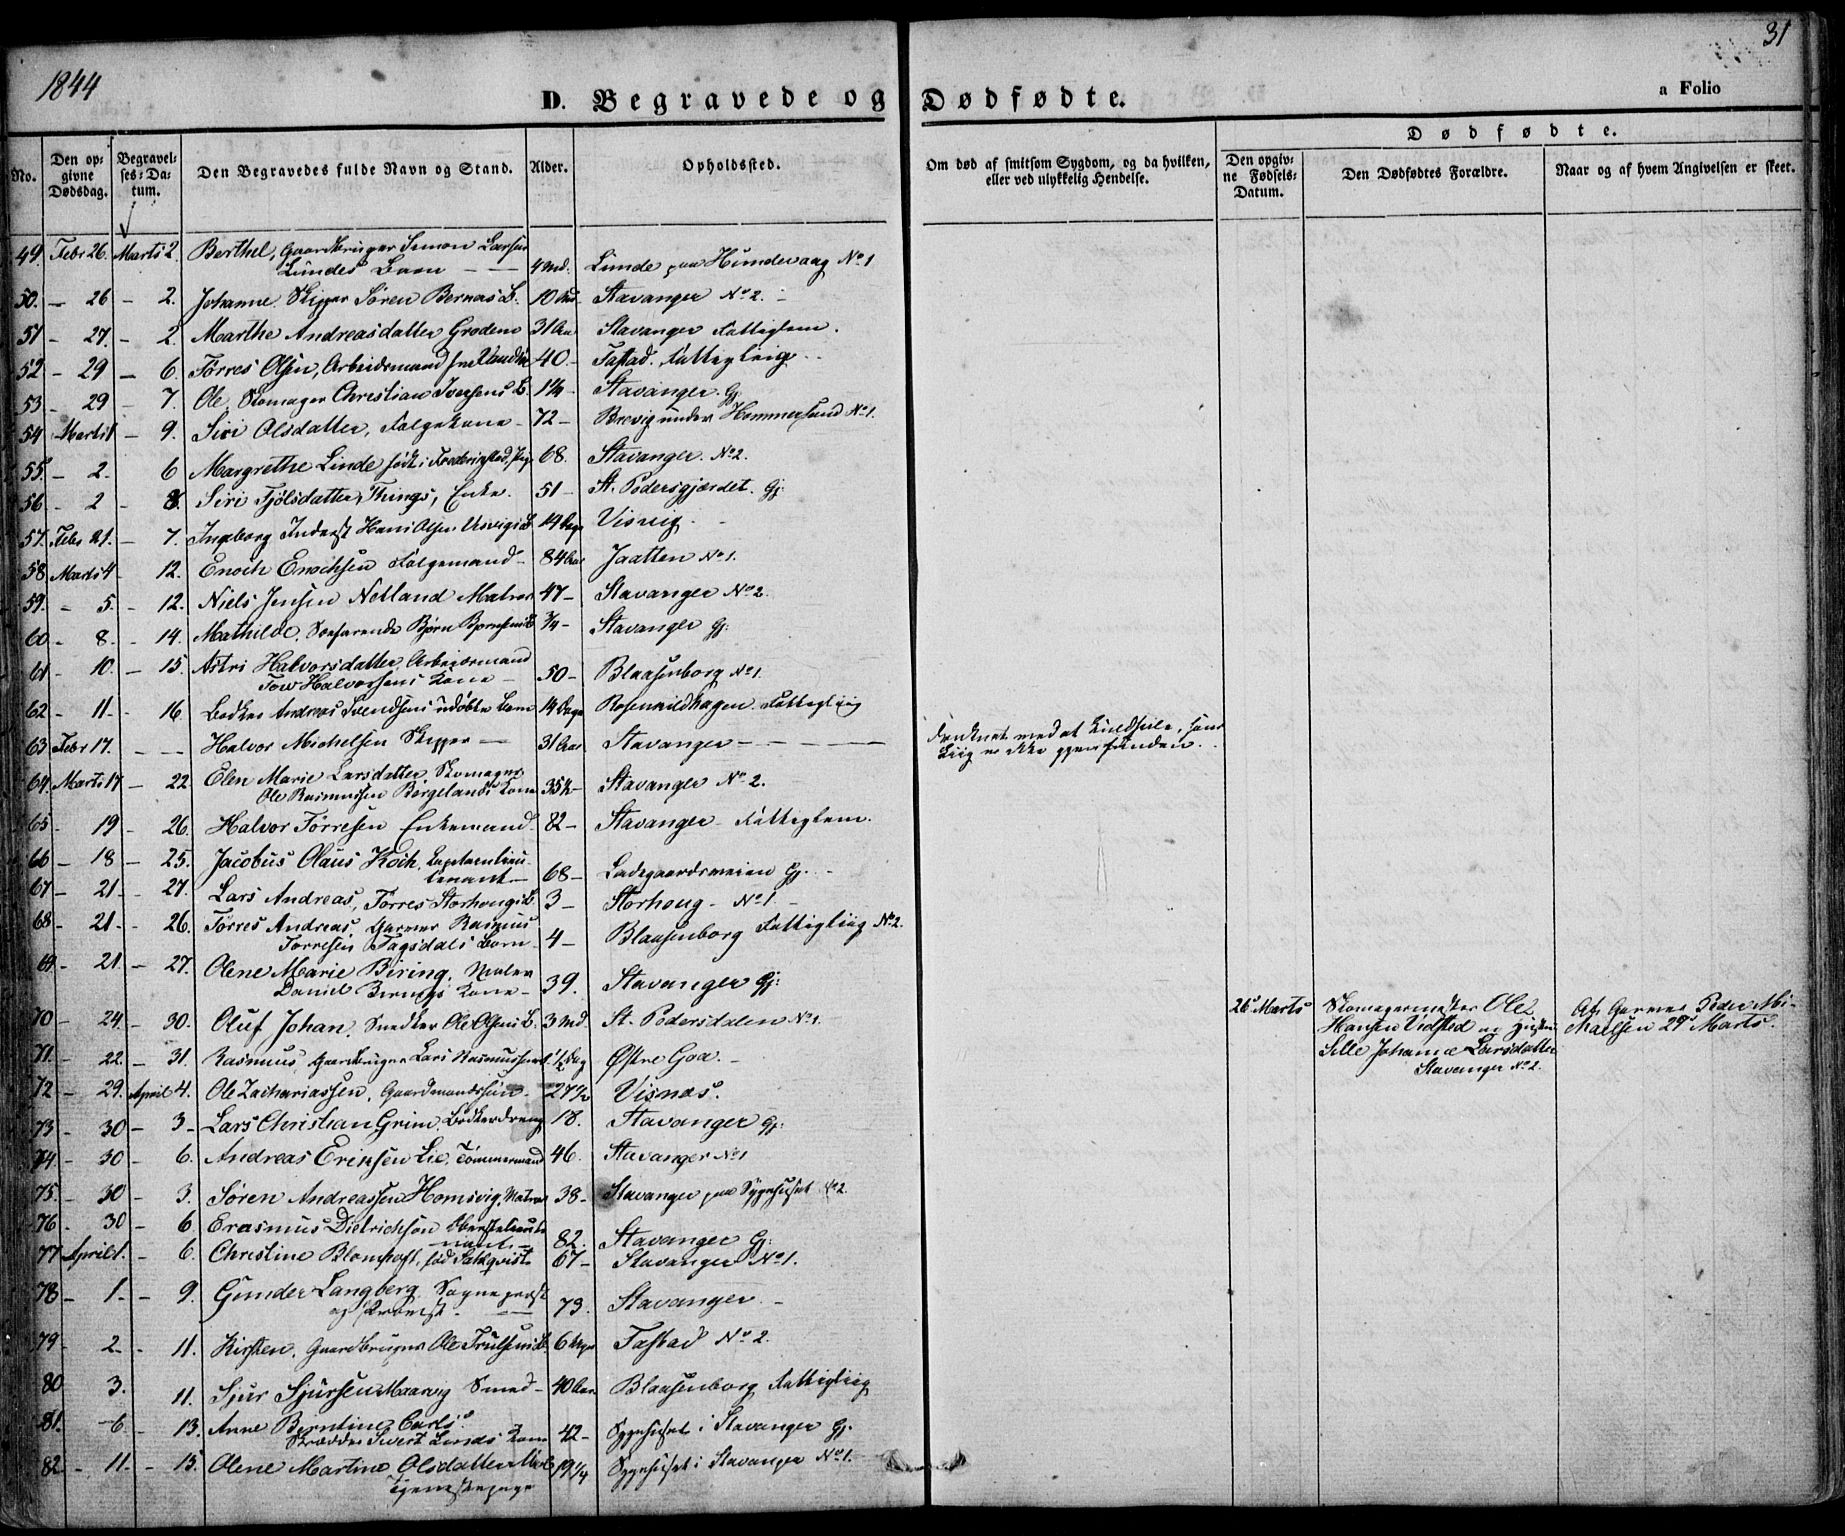 1844
31
D. Begravede og Dødfødte.
a Folio
No.
Den opgivne Dødsdag.
Begravelses-Datum.
Den Begravedes fulde Navn og Stand.
Alder.
Opholdssted.
Om død af smitsom Sygdom, og da hvilken, eller ved ulykkelig Hendelse.
Dødfødte.
Den opgivne Fødsels-Datum.
Den Dødfødtes Forældre.
Naar og af hvem Angivelsen er skeet.
49. Febr 26. Marts 2. Berthel, Gaardbruger Simon Larsen
Lundes Barn — 4 Md. Lunde paa Hundevaag No 1
50. — 26 — 2. Johanne Skipper Sören Bernas B. 10 Stavanger No 2.
51 — 27. — 2. Marthe Andreasdatter Grodem 31 Aar Stavanger Fattiglem.
52 — 29 — 6. Törres Olsen, Arbeidsmand 40 — Tastad. Fattigliig
53. — 29 — 7. Ole, Skomager Christian Iversens B. Stavanger. Gj.
54 Marts 1 — 9. Siri Olsdatter, Folgekone — 72 — Brevig under Hommersand No 1.
55. — 2. 6 Margrethe Linde födt i Frederiksted, 68. Stavanger. No 2.
56 — 2 8. Siri Tjölsdatter Things, Enke. 51 — St. Pedersgjærdet. Gj.
57. Febr 21. — 7. Ingeborg Inderst Hans Olsen Visvigs B. 14 Dage Visvig.
58 Marts 4 — 12. Enoch Enochsen Folgemand — 84 Aar Jaatten No 1.
59. — 5. — 12. Niels Jensen Netland Matros 47 — Stavanger No 2
60 — 8. — 14. Mathilde, Söefarende Björn Björnsens B 3/4 — Stavanger Gj.
61 — 10. — 15. Astri Halvorsdatter, Arbeidsmand
Tow Halvorsens Kone — 50 — Blaasenborg No 1.
62 — 11. — 16. Bödker Andreas Svendsens udöbte Barn 14 Dage Rosenkildhagen. Fattigliig
63 Febr 17. — — Halvor Michelsen Skipper — 31 Aar Stavanger — — — Druknet ved at Kuldseile, hans
Liig er ikke gjenfunden.
64. Marts 17 — 22 Elen Marie Larsdatter, Skomager
Ole Rasmussen Bergelands Kone 35 1/2 — Stavanger No 2.
65 — 19 — 26. Halvor Törresen Enkemand. 82 — Stavanger — Fattiglem.
66 — 18 — 25. Jacobus Olaus Koch, Capitainlieu-
tenant — 68 — Ladegaardsveien Gj.
67 — 21 — 27. Lars Andreas, Törres Storhougs B. 3 — Storhoug — No 1 —
68 — 21 — 26. Törres Andreas, Garver Rasmus
Torresen Tagsdals Barn 4 — Blaasenborg Fattigliig No 2.
69 — 21 — 27. Olene Marie Biring, Maler
Daniel Birings Kone — 39. Stavanger Gj.
70 — 24. — 30. Oluf Johan, Snedker Ole Olsens B. 3 Md. St. Pedersdalen No 1.
26de Marts Skomagermester Ole
Hansen Vidsted og Hustru
Sille Johanne Larsdatter
Stavanger No 2.
Af Garver Peder Mi-
kaelsen 27de Marts.
71. — 22. — 31. Rasmus, Gaardbruger Lars Rasmussens 1/2 Dag Östre Goa. —
72 — 29. April 4. Ole Zachariassen, Gaardmandssön — 27 1/2 Visnæs.
73 — 30 — 3. Lars Christian Grim, Bödkerdreng 18. Stavanger Gj.
74 — 30 — 6. Andreas Eriksen Lie, Tömmermand 46. Stavanger No 1
75. — 30 — 3. Sören Andreassen Homsvig, Matros 38 — Stavanger paa Sygehuset No 2.
76 — 30 — 6. Erasmus Dietrichson Oberstlieute-
nant — 82. Stavanger Gj.
77 April 1. — 6. Christine Blomhoff, fød Salqvist 67 — Stavanger No 1.
78 — 1. — 9. Gunder Langberg, Sogneprest
og Provst — 73. Stavanger. —
79 — 2. — 11. Kirsten, Gaardbruger Ole Trulsens B. 6 Uger Tastad No 2.
80 3. 11. Sjur Sjursen Maarvig Smed — 40 Aar Blaasenborg Fattigliig
81. — 6. — 13. Anne Berntine Carls
Skrædder Sivert Lunds Kone 42 — Sygehuset i Stavanger Gj.
82 — 11. — 15. Olene Martine Olsdatter
Tjenestepige 19 1/4 Sygehuset i Stavanger No 1.